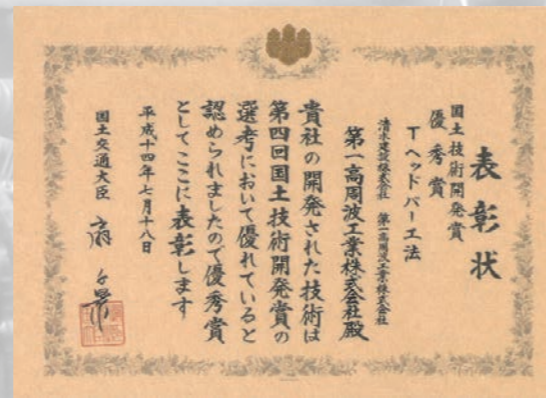 表彰状
国土技術開発賞
優秀賞
Tヘッドバー工法
清水建設株式会社 第一高周波工業株式会社
第一高周波工業株式会社殿
貴社の開発された技術は
第四回国土技術開発賞の
選考において優れていると
認められましたので優秀賞
としてここに表彰します
平成十四年七月十八日
国土交通大臣 扇 千景